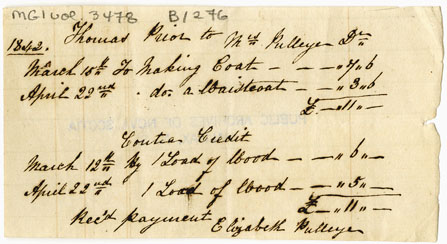 MG1 vol 3478 B/276
1842. Thomas Prior to Mrs Pulleyer Dr
March 15th To Making Coat — — „ 7 „ 6
April 22nd „ do a Waistcoat — — „ 3 „ 6
£ — „ 11 „ —
Contra Credit
March 12th By 1 Load of Wood — — „ 6 „ —
April 22nd 1 Load of Wood — — „ 5 „ —
£ — „ 11 „ —
Rec'd payment Elizabeth Pulleyer